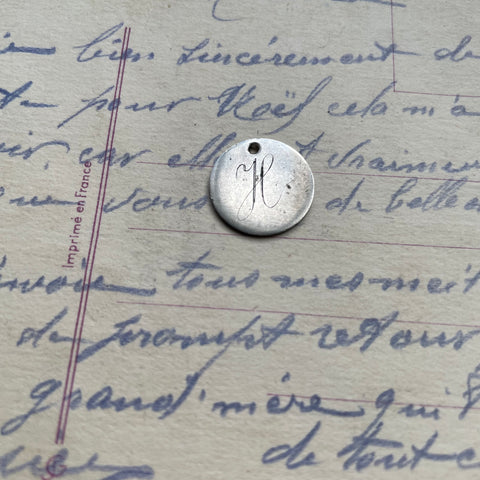 bien sincèrement de
pour Noël cela m'a
car elle vraiment
vous de belle
H
Imprimé en France
tous mes meil
de prompt retour
grand'mère qui
de tout c